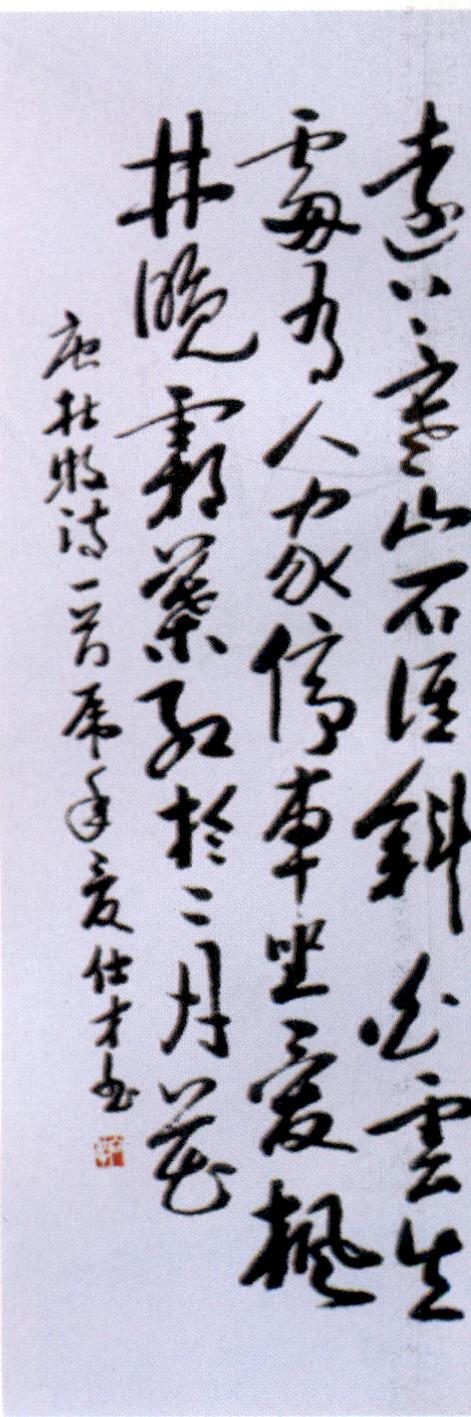 遠上寒山石徑斜白雲生
處有人家停車坐愛楓
林晚霜葉紅於二月花
唐杜牧詩一首虎年夏仕才書